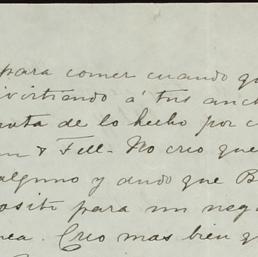 para comer cuando qu
ivirtiendo á tus anch
nota de lo hecho por c
m & Fell - No creo que
alguno y dudo que B
osito para un nego
nea. Creo mas bien q